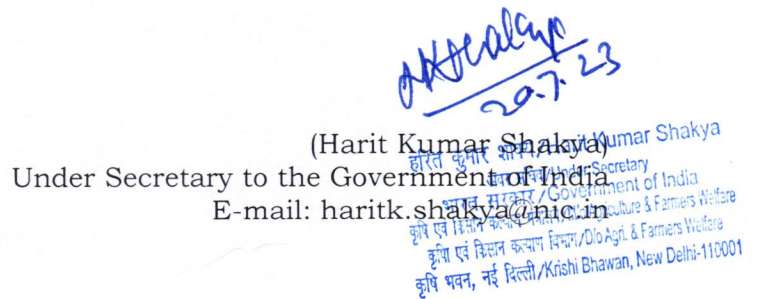 20.7.23
(Harit Kumar Shakya)
Under Secretary to the Government of India
E-mail: haritk.shakya@nic.in
हरित कुमार शाक्य/Harit Kumar Shakya
अवर सचिव/Under Secretary
भारत सरकार/Government of India
कृषि एवं किसान कल्याण मंत्रालय/M/o Agriculture & Farmers Welfare
कृषि एवं किसान कल्याण विभाग/D/o Agri. & Farmers Welfare
कृषि भवन, नई दिल्ली/Krishi Bhawan, New Delhi-110001